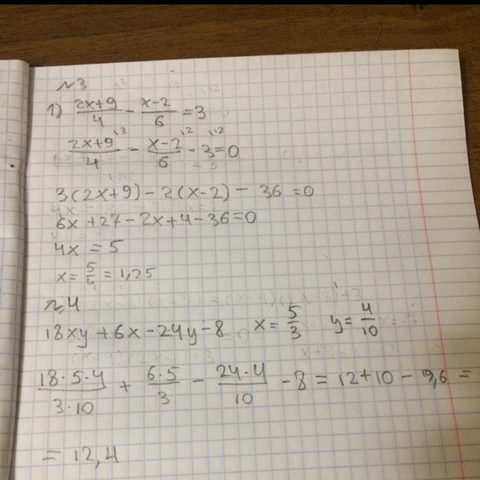 №3
1) (2x+9)/4 - (x-2)/6 = 3
(2x+9)/4 ·3 - (x-2)/6 ·2 - 3 ·12 = 0
3(2x+9) - 2(x-2) - 36 = 0
6x + 27 - 2x + 4 - 36 = 0
4x = 5
x = 5/4 = 1,25
№4
18xy + 6x - 24y - 8 x = 5/3 y = 4/10
(18·5·4)/(3·10) + (6·5)/3 - (24·4)/10 - 8 = 12 + 10 - 9,6 =
= 12,4